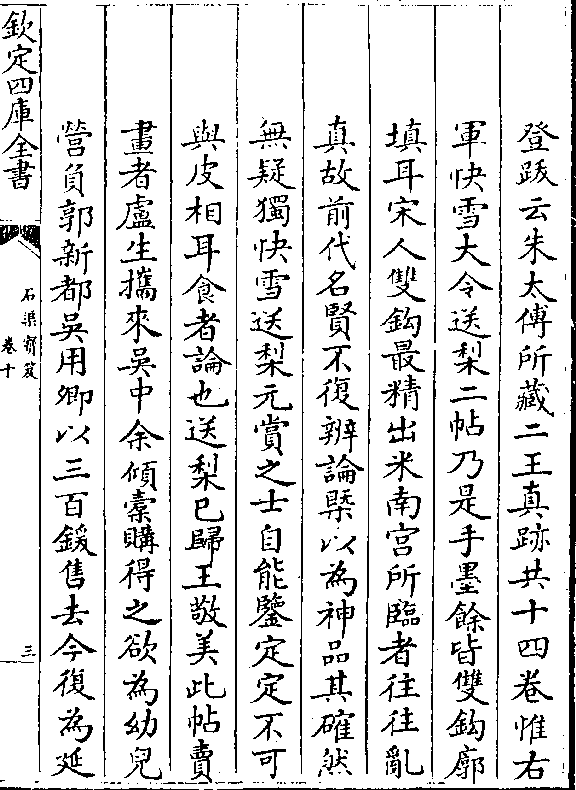 登䟦云朱太傅所藏二王真跡共十四卷惟右
軍快雪大令送梨二帖乃是手墨餘皆雙鈎廓
填耳宋人雙鈎最精出米南宫所臨者往往亂
真故前代名賢不復辨論槩以為神品其確然
無疑獨快雪送梨元賞之士自能鑒定定不可
與皮相耳食者論也送梨已歸王敬美此帖賣
畫者盧生攜來吳中余傾橐購得之欲為幼兒
營負郭新都吳用卿以三百鍰售去今復為延
欽定四庫全書
石渠寳笈
卷十
三